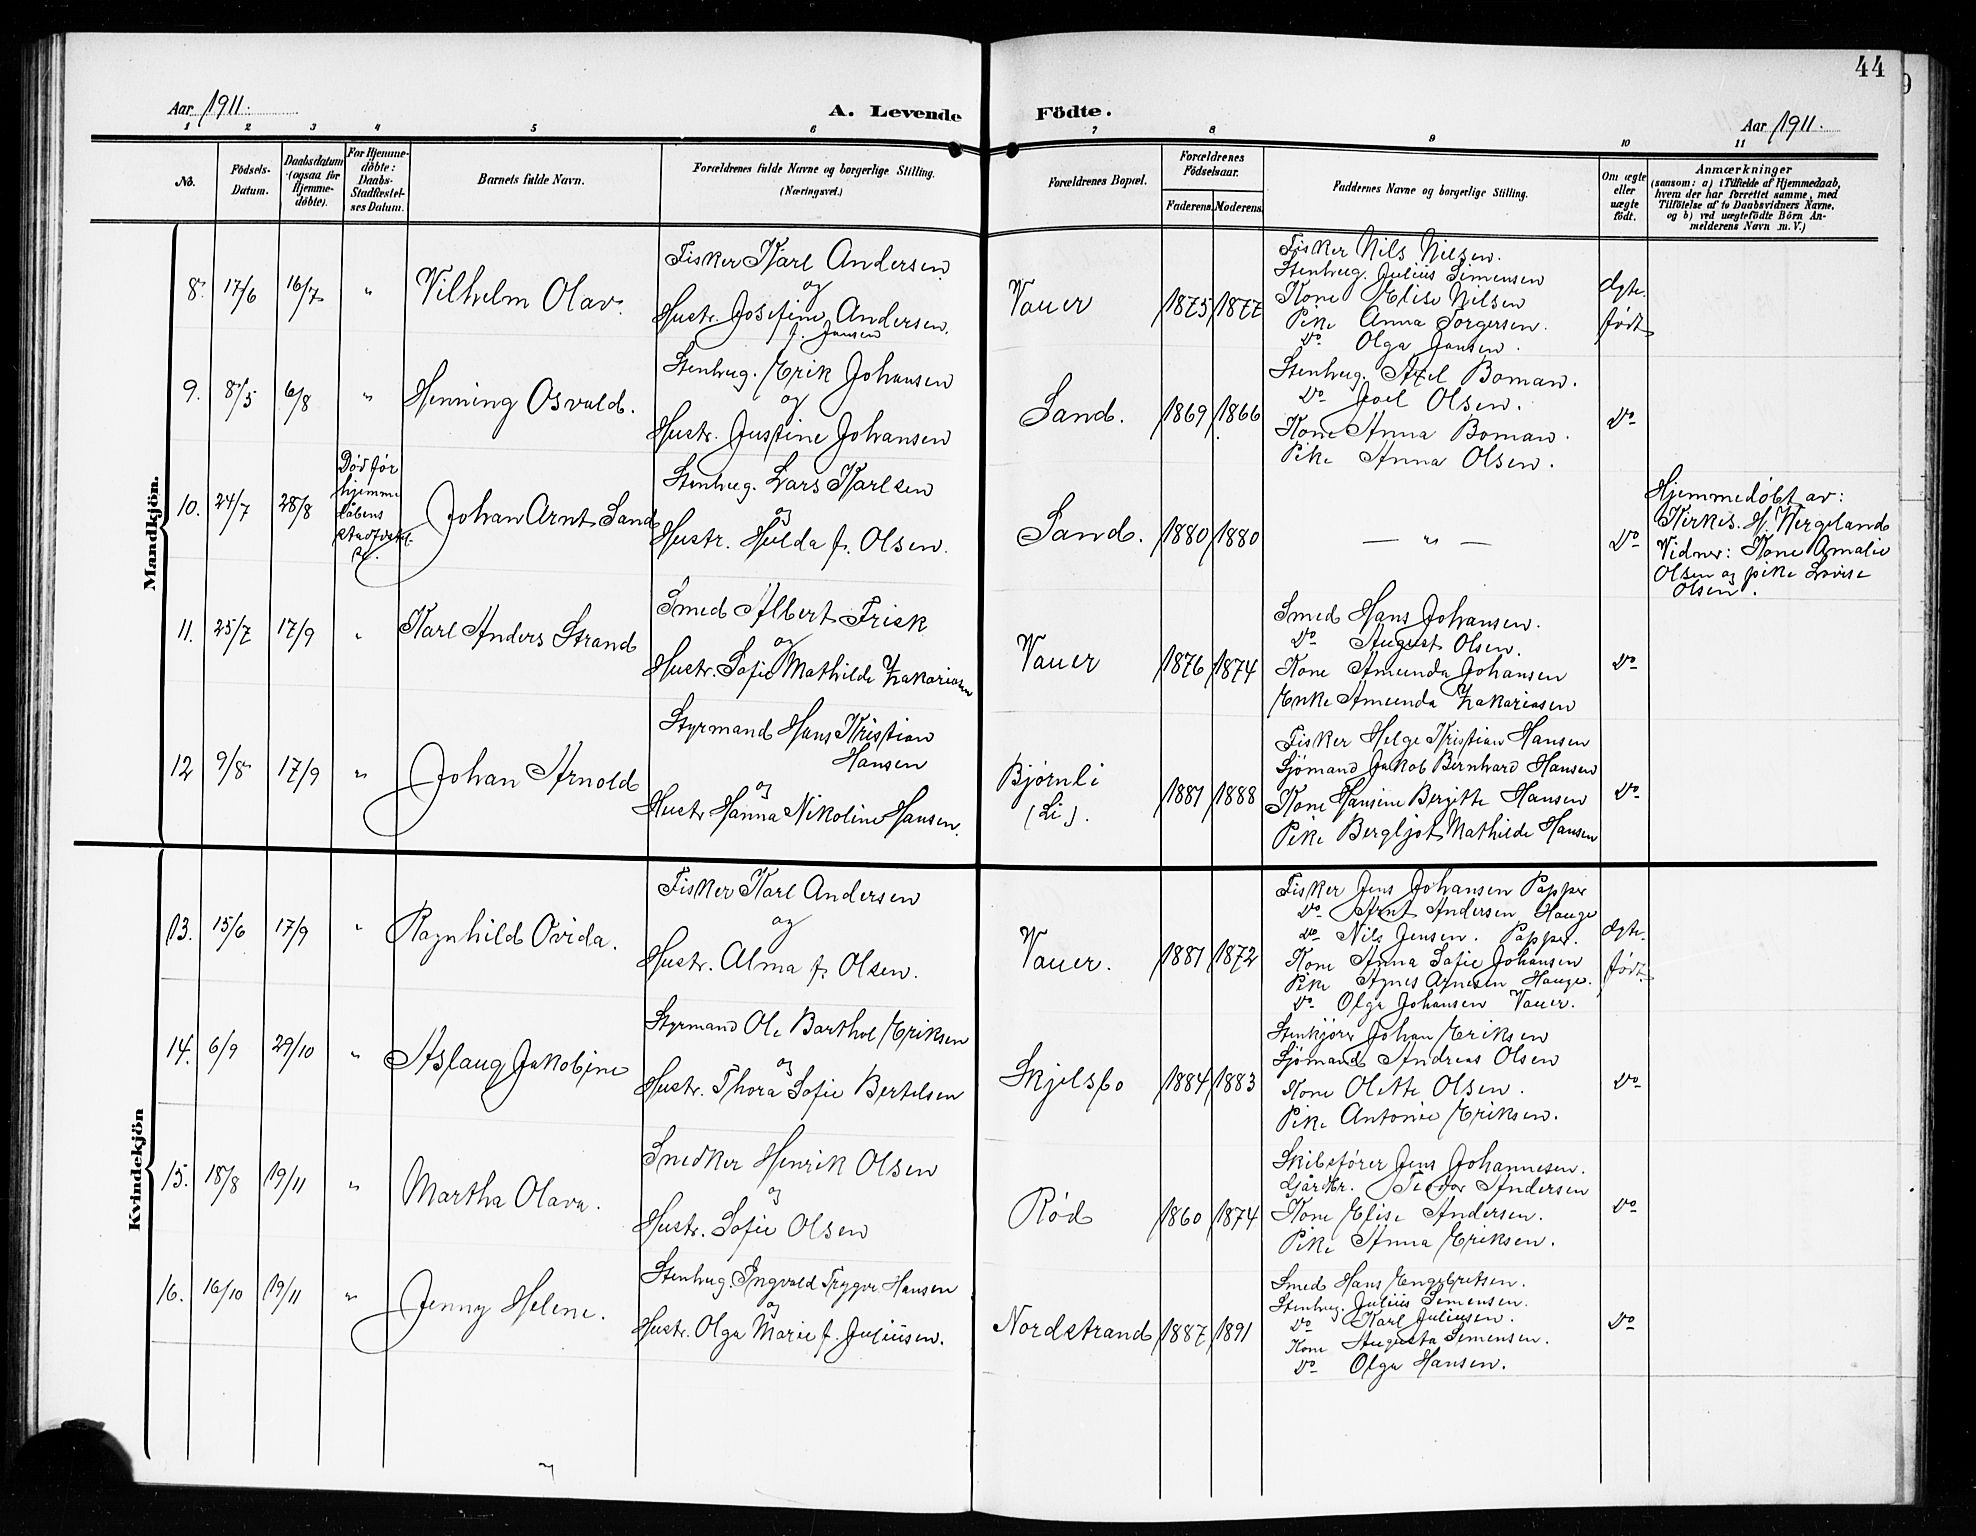 44
Aar 1911.
A. Levende Födte.
Aar 1911.
1 2 3 4 5 6 7 8 9 10 11
No.
Födsels-
Datum.
Daabsdatum
(ogsaa for
Hjemme-
döbte).
For Hjemme-
döbte:
Daabs-
Stadfæstel-
ses Datum.
Barnets fulde Navn.
Forældrenes fulde Navne og borgerlige Stilling.
(Næringsvei.)
Forældrenes Bopæl.
Forældrenes
Födselsaar.
Faderens. Moderens.
Faddernes Navne og borgerlige Stilling.
Om ægte
eller
uægte
födt.
Anmærkninger
(saasom: a) i Tilfælde af Hjemmedaab,
hvem der har forrettet samme, med
Tilföielse af to Daabsvidners Navne.
og b) ved uægtefödte Börn An-
melderens Navn m. V.)
Mandkjön.
8. 17/6 16/7 " Vilhelm Olav.
Fisker Karl Andersen
og
Hustr. Josefine Andersen.
f. Jansen
Vauer 1875 1877
Fisker Nils Nilsen.
Stenhug. Julius Simensen
Kone Elise Nilsen
Pike Anna Torgersen.
Do Olga Jansen.
Ægte-
født
9. 8/5 6/8 " Henning Osvald.
Stenhug. Erik Johansen
og
Hustr. Justine Johansen
Sand. 1869 1866
Stenhug. Axel Boman.
Do Joel Olsen.
Kone Anna Boman.
Pike Anna Olsen.
Do
10. 24/7 28/8
Død før
hjemme
dåbens
stadfæst.
Johan Arnt Sand
Stenhug. Lars Karlsen
og
Hustr. Hulda f. Olsen.
Sand. 1880 1880
— " —
Do
Hjemmedøbt av:
Kirkes. H. Wergeland
Vidner: Kone Amalie
Olsen og pike Lovise
Olsen.
11. 25/7 17/9 " Karl Anders Strand
Smed Albert Frisk
og
Hustr. Sofie Mathilde Zakariasen
Vauer 1876 1874
Smed Hans Johansen.
Do August Olsen.
Kone Amunda Johansen
Enke Amunda Zakariasen
Do
12 9/8 17/9 " Johan Arnold
Styrmand Hans Kristian
Hansen
og
Hustr Hanna Nikoline Hansen.
Bjørnli
(Li).
1881 1888
Fisker Helge Kristian Hansen
Sjømand Jakob Bernhard Hansen
Kone Hansine Bergitte Hansen
Pike Bergljot Mathilde Hansen
Do
Kvindekjön
13. 15/6 17/9 " Ragnhild Ovida.
Fisker Karl Andersen
og
Hustr. Alma f. Olsen.
Vauer. 1881 1872
Fisker Jens Johansen Papper
Do Arnt Andersen Hauge
Do Nils Jensen. Papper.
Kone Anna Sofie Johansen
Pike Agnes Agnesen Hauge.
Do Olga Johansen Vauer.
Ægte-
født
14. 6/9 29/10 " Aslaug Jakobine
Styrmand Ole Barthol Eriksen
og
Hustr. Thora Sofie Bertelsen
Skjelsbo 1884 1883
Stenkjører Johan Eriksen
Sjømand Andreas Olsen
Kone Olette Olsen.
Pike Antonie Eriksen.
Do
15. 18/8 19/11 " Martha Olava.
Snedker Henrik Olsen
og
Hustr. Sofie Olsen
Rød 1860 1874
Skibsfører Jens Johannesen.
Gårdbr. Teodor Andersen
Kone Elise Andersen.
Pike Anna Eriksen.
Do
16. 16/10 19/11 " Jenny Helene.
Stenhug. Ingvald Trygve Hansen
og
Hustr. Olga Marie f. Juliusen.
Nordstrand 1887 1891
Smed Hans Engebretsen.
Stenhug. Julius Simensen.
Do Karl Juliusen.
Kone Augusta Simensen.
Do Olga Hansen.
Do